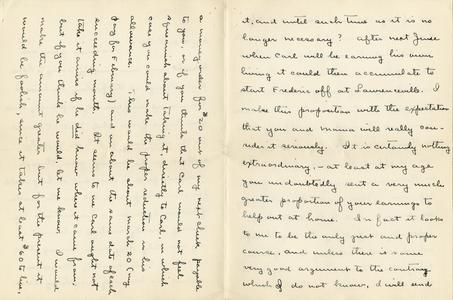 it, and until such time as it is no
longer necessary? After next June
when Carl will be earning his own
living it could then accumulate to
start Frederic off at Lawrenceville. I
make this proposition with the expectation
that you and mama will really con-
sider it seriously. It is certainly nothing
extraordinary, - at least at my age
you undoubtedly sent a very much
greater proportion of your earnings to
help out at home. In fact it looks
to me to be the only just and proper
course, and unless there is some
very good argument to the contrary
which I do not know, I will send
a money order for $20 out of my next check payable
to you, or if you think that Carl would not feel
squeamish about taking it, directly to Carl, in which
case you could make the proper reduction in his
allowance. This would be about March 20 (my
pay for February) and on about the same date of each
succeeding month. It seems to me Carl ought not
take it amiss if he did know where it came from,
but if you think he would, let me know. I would
make the amount greater but for the present it
would be foolish, since it takes at least $60 to live,